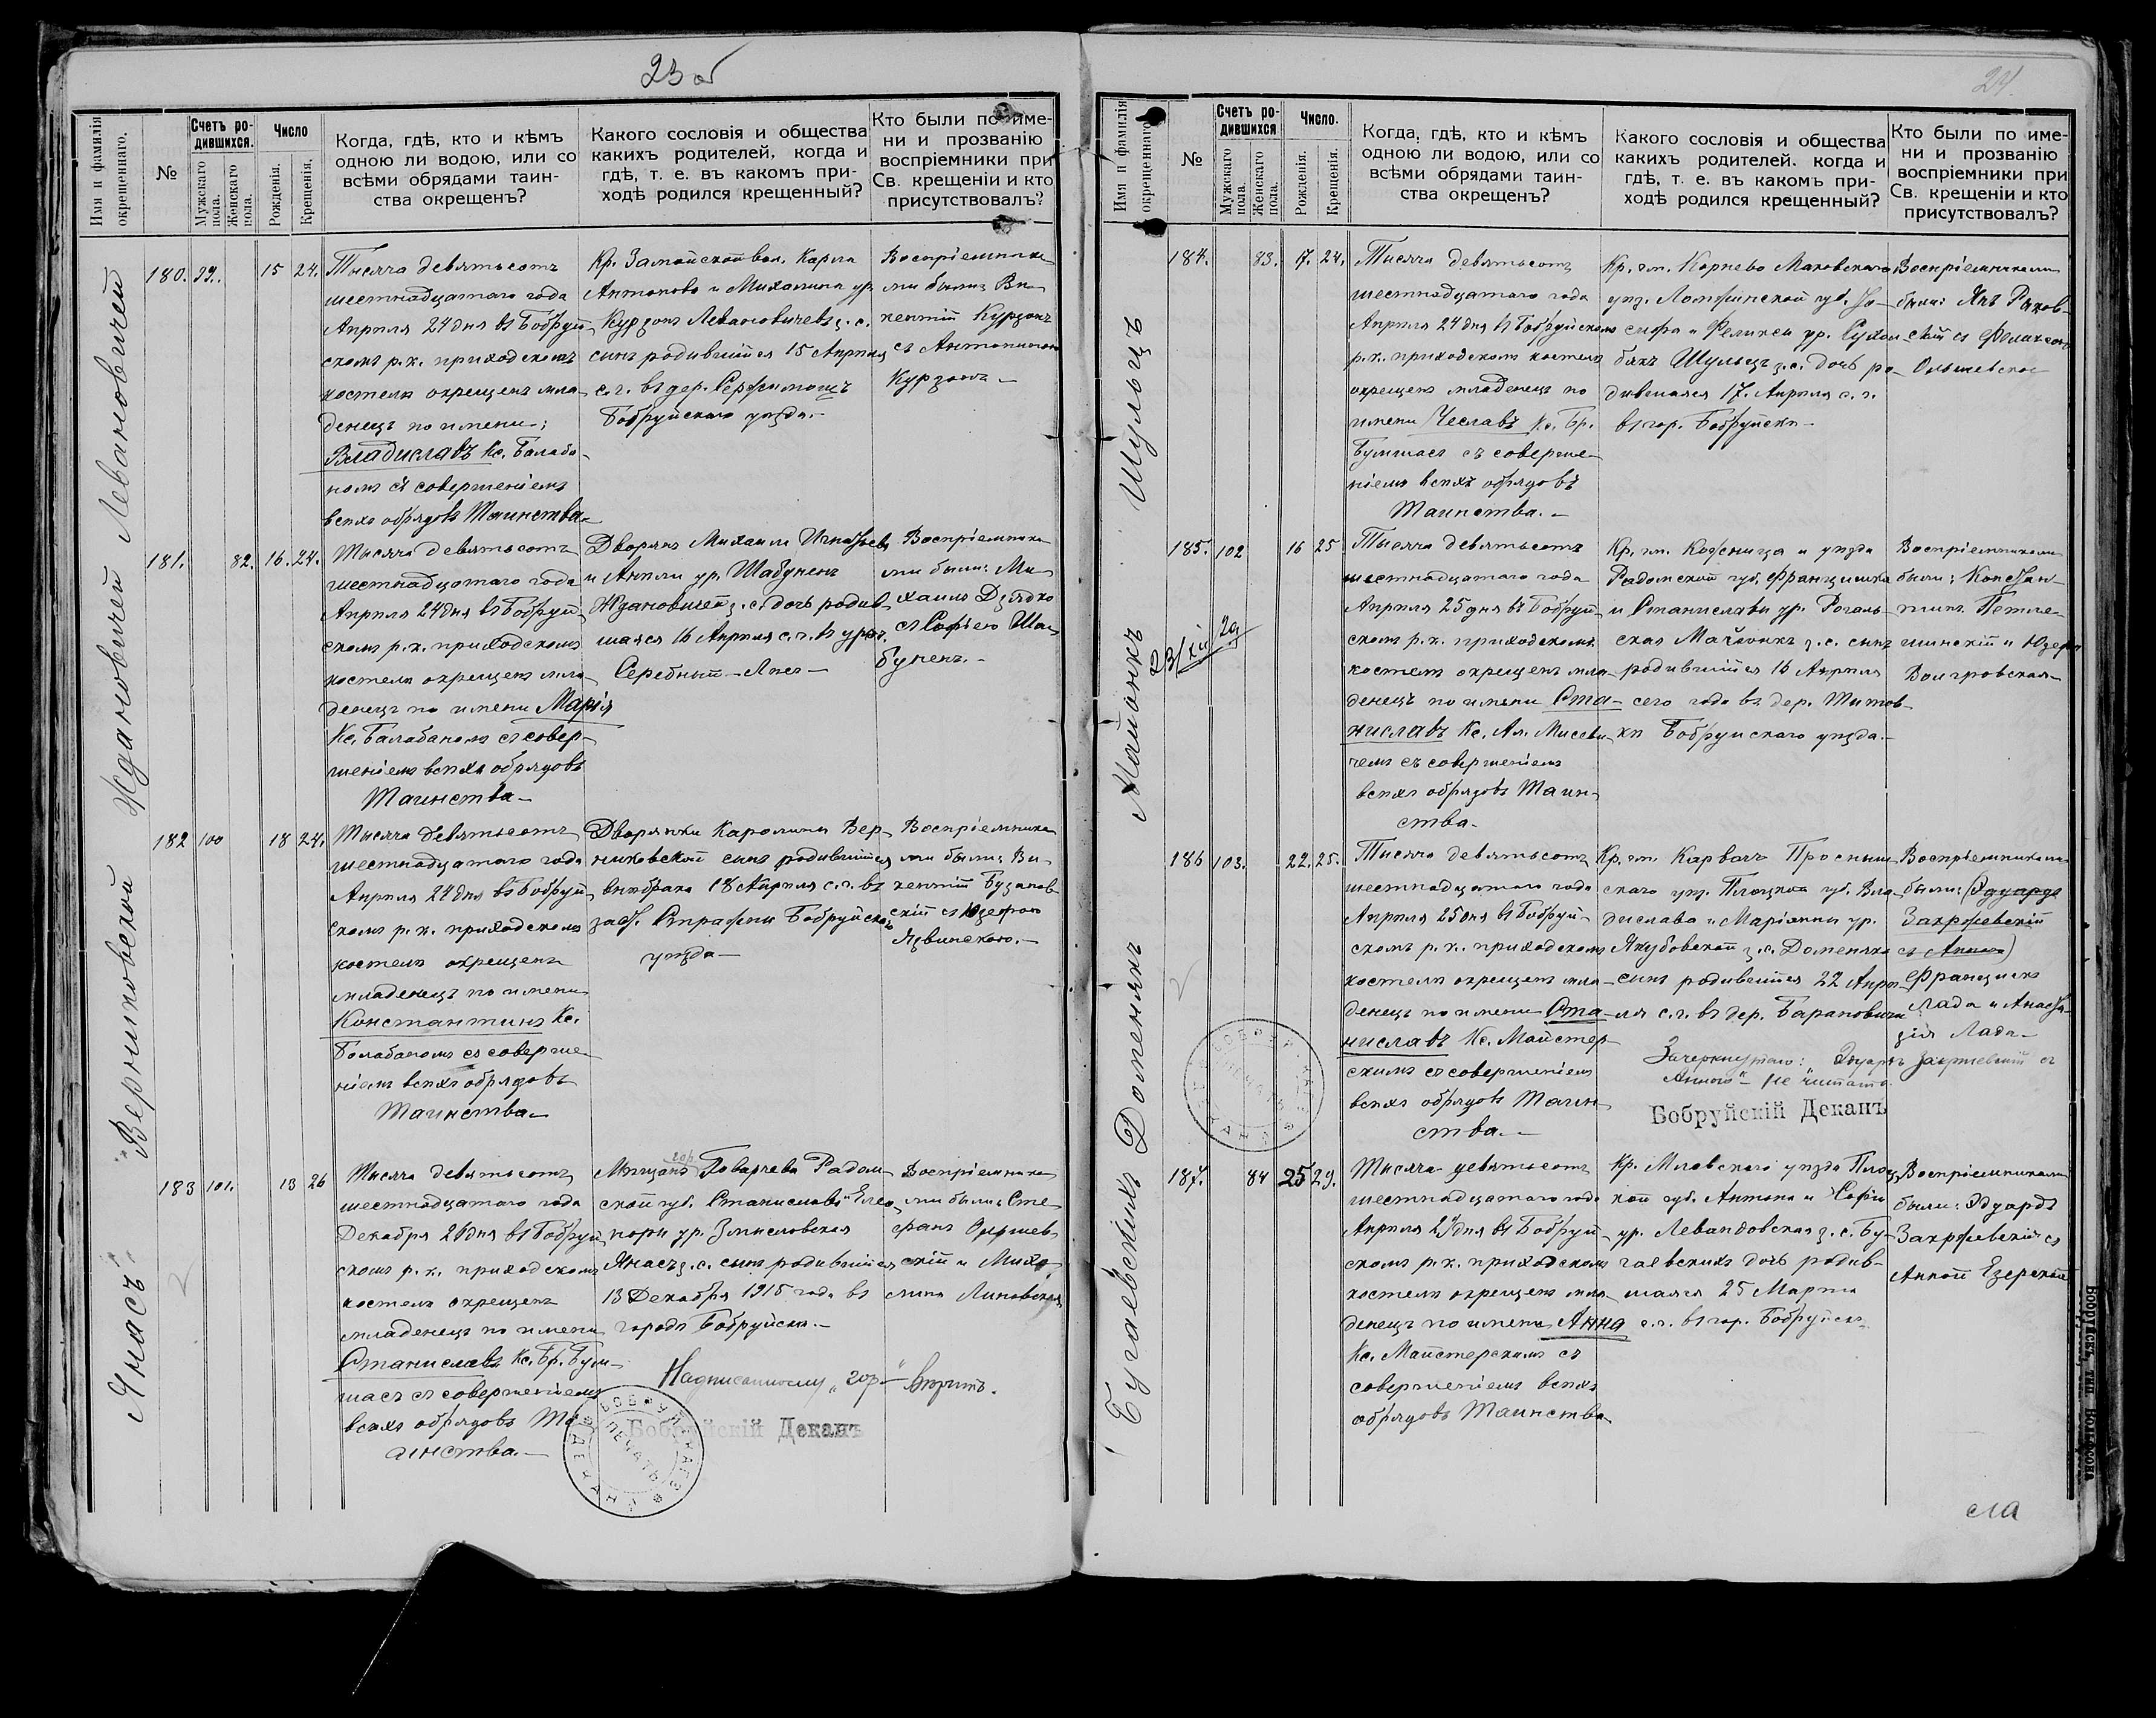 23 об
Имя и фамилія окрещеннаго.
№
Счетъ ро-
дившихся.
Мужскаго пола.
Женскаго пола.
Число
Рожденія.
Крещенія.
Когда, гдѣ, кто и кѣмъ
одною ли водою, или со
всѣми обрядами таин-
ства окрещенъ?
Какого сословія и общества
какихъ родителей, когда и
гдѣ, т. е. въ какомъ при-
ходѣ родился крещенный?
Кто были по име-
ни и прозванію
воспріемники при
Св. крещеніи и кто
присутствовалъ?
Левановичей
180. 99. 15 24.
Тысяча девятьсотъ
шестнадцатаго года
Апрѣля 24 дня въ Бобруй-
скомъ р.к. приходскомъ
костелѣ окрещенъ мла-
денецъ по имени:
Владиславъ Кс. Балаба-
номъ съ совершеніемъ
всѣхъ обрядовъ Таинства.
Кр. Замойской вол. Карла
Антонова и Михалины ур.
Курзонъ Левановичевъ з. с.
сынъ родившійся 15 Апрѣля
с. г. въ дер.
Бобруйскаго уѣзда.-
Воспріемника-
ми были: Ви-
кентій Курзонъ
съ Антониною
Курзонъ -
Ждановичей
181. 82. 16. 24.
Тысяча девятьсотъ
шестнадцатаго года
Апрѣля 24 дня въ Бобруй-
скомъ р.к. приходскомъ
костелѣ окрещенъ мла-
денецъ по имени Марія
Кс. Балабаномъ съ совер-
шеніемъ всѣхъ обрядовъ
Таинства -
Дворянъ Михаила Игнатьева
и Анели ур. Шабуненъ
Ждановичей з. с. дочь родив-
шаяся 16 Апрѣля с. г. въ ур.
Воспріемника-
ми были: Ми-
хаилъ Дзядко
съ Софьею Ша-
буненъ. -
"Верниковской
182 100 18 24.
Тысяча девятьсотъ
шестнадцатаго года
Апрѣля 24 дня въ Бобруй-
скомъ р. к. приходскомъ
костелѣ окрещенъ
младенецъ по имени
Константинъ Кс.
Балабаномъ съ соверше-
ніемъ всѣхъ обрядовъ
Таинства -
Дворянки Каролины Вер-
никовской сынъ родившійся
внѣбрака 18 Апрѣля с. г. въ
заст. Бобруйскаго
уѣзда -
Воспріемника-
ми были: Ви-
кентій
скій съ Юзефою
Язвинскою. -
Янасъ".
183 101. 13 26
Тысяча девятьсотъ
шестнадцатаго года
Декабря 26 дня въ Бобруй-
скомъ р. к. приходскомъ
костелѣ окрещенъ
младенецъ по имени
Станиславъ Кс. Бр. Бум-
шасъ съ совершеніемъ
всѣхъ обрядовъ Та-
инства. -
гор.
Мѣщанъ Радом-
ской губ. Станислава и Елео-
норы ур. Змысловская
Янасъ з. с. сынъ родившійся
13 Декабря 1915 года въ
городѣ Бобруйскѣ. -
Воспріемника-
ми были: Сте-
фанъ
скій и Миха-
лина Линовская
Надписанному „гор." вѣрить.
Бобруйскій Деканъ
ПЕЧАТЬ
24.
Имя и фамилія окрещеннаго.
№
Счетъ ро-
дившихся
Мужскаго пола.
Женскаго пола.
Число.
Рожденія.
Крещенія.
Когда, гдѣ, кто и кѣмъ
одною ли водою, или со
всѣми обрядами таин-
ства окрещенъ?
Какого сословія и общества
какихъ родителей. когда и
гдѣ, т. е. въ какомъ при-
ходѣ родился крещенный?
Кто были по име-
ни и прозванію
воспріемники при
Св. крещеніи и кто
присутствовалъ?
Шульцъ
184. 83. 17. 24.
Тысяча девятьсотъ
шестнадцатаго года
Апрѣля 24 дня въ Бобруйскомъ
р. к. приходскомъ костелѣ
окрещенъ младенецъ по
имени Чеславъ Кс. Бр.
Бумшасъ съ соверше-
ніемъ всѣхъ обрядовъ
Таинства. -
Кр. гм. Корнево Маковскаго
уѣз. Ломжинской губ. Іо-
сифа и Феликсы ур.
Шульцъ з. с. дочь ро-
дившаяся 17. Апрѣля с. г.
въ гор. Бобруйскѣ -
Воспріемниками
были: Янъ Раков-
скій съ Феликсою
Ольшевскою
Майонкъ
23/XII 29
185. 102 16 25
Тысяча девятьсотъ
шестнадцатаго года
Апрѣля 25 дня въ Бобруй-
скомъ р. к. приходскомъ
костелѣ окрещенъ мла-
денецъ по имени Ста-
ниславъ Кс. Ал. Мисеви-
чемъ съ совершеніемъ
всѣхъ обрядовъ Таин-
ства. -
Кр. гм. Кожница и уѣзда
Радомской губ. Францишка
и Станиславы ур. Рогаль-
ская Майонкъ з. с. сынъ
родившійся 16 Апрѣля
сего года въ дер. Титов-
кѣ Бобруйскаго уѣзда. -
Воспріемниками
были: Констан-
тинъ
и Юзефа
Доменякъ
186 103. 22. 25.
Тысяча девятьсотъ
шестнадцатаго года
Апрѣля 25 дня въ Бобруй-
скомъ р. к. приходскомъ
костелѣ окрещенъ мла-
денецъ по имени Ста-
ниславъ Кс. Майстер-
скимъ съ совершеніемъ
всѣхъ обрядовъ Таин-
ства. -
Кр. гм. Карвачъ Прасныш-
скаго уѣз. Плоцкой губ. Вла-
дислава и Маріянны ур.
Якубовской з. с. Доменяка
сынъ родившійся 22 Апрѣ-
ля с. г. въ дер. Барановичи
Воспріемниками
были: (Эдуардъ
Закржевскій
съ Анною)
Францискъ
Лада и Анаста-
зія Лада -
Зачеркнутаго: Эдуардъ Закржевскій съ
Анною" - не читать.
Бобруйскій Деканъ
Бугаевскихъ
187. 84 25 29.
Тысяча девятьсотъ
шестнадцатаго года
Апрѣля 29 дня въ Бобруй-
скомъ р. к. приходскомъ
костелѣ окрещенъ мла-
денецъ по имени Анна
Кс. Майстерскимъ съ
совершеніемъ всѣхъ
обрядовъ Таинства.
Кр. Млавскаго уѣзда Плоц-
кой губ. Антона и Софіи
ур. Левандовская з. с. Бу-
гаевскихъ дочь родив-
шаяся 25 Марта
с. г. въ гор. Бобруйскѣ
Воспріемниками
были: Эдуардъ
Закржевскій съ
Анной Езерской